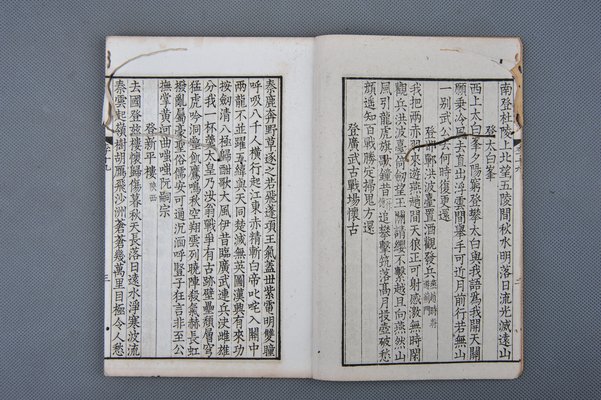 南登杜陵上北望五陵間秋水明落日流光滅遠山
登太白峯
西上太白峯夕陽窮登攀太白與我語爲我開天關
願乘冷風去直出浮雲間舉手可近月前行若無山
一別武功去何時復更還
登邯鄲洪波臺置酒觀發兵
我把兩赤羽來遊燕趙間天狼正可射感激無時閑
觀兵洪波臺倚劒望玉關請纓不繫越且向燕然山
風引龍虎旗歌鐘昔追攀擊筑落高月投壺破愁
顏遥知百戰勝定掃鬼方還
登廣武古戰場懷古
秦鹿奔野草逐之若飛蓬項王氣蓋世紫電明雙瞳
呼吸八千人橫行起江東赤精斬白帝叱咤入關中
兩龍不並躍五緯與天同楚滅無英圖漢興有來功
按劒清八極歸酣歌大風伊昔臨廣武連兵決雌雄
分我一杯羹太皇乃汝翁戰爭有古跡壁壘頹層穹
猛虎吟洞壑飢鷹鳴秋空翔雲列曉陣殺氣赫長虹
撥亂屬豪聖俗儒安可通沉湎呼豎子狂言非至公
撫掌黃河曲嗤嗤阮嗣宗
登新平樓
去國登茲樓懷歸傷暮秋天長落日遠水淨寒波流
秦雲起嶺樹胡鴈飛沙洲蒼蒼幾萬里目極令人愁